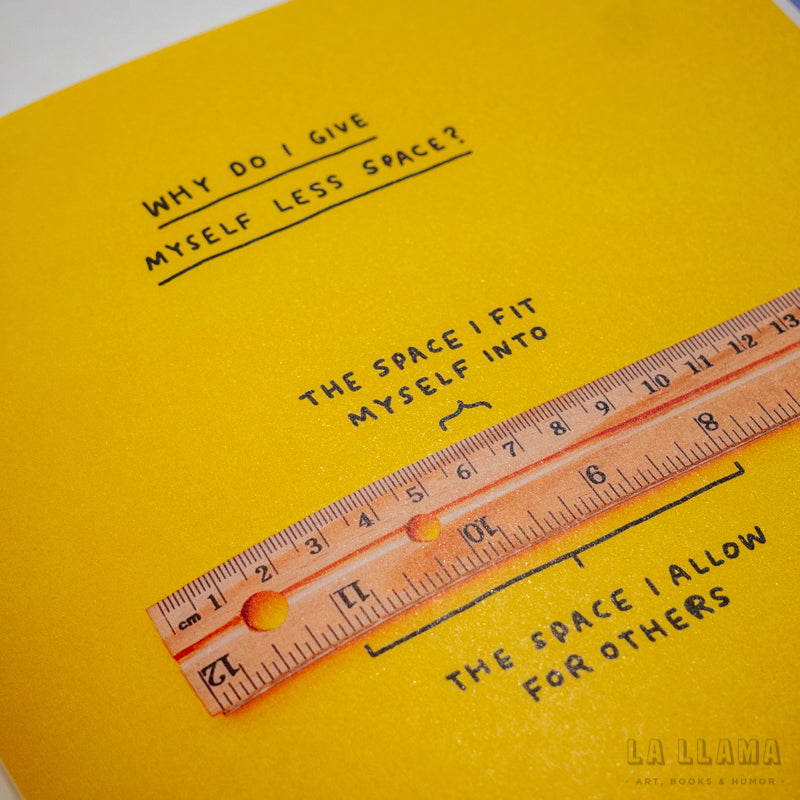 WHY DO I GIVE
MYSELF LESS SPACE?
THE SPACE I FIT
MYSELF INTO
cm 1 2 3 4 5 6 7 8 9 10 11 12 13
12 11 10 9 8
THE SPACE I ALLOW
FOR OTHERS
LA LLAMA
· ART, BOOKS & HUMOR ·